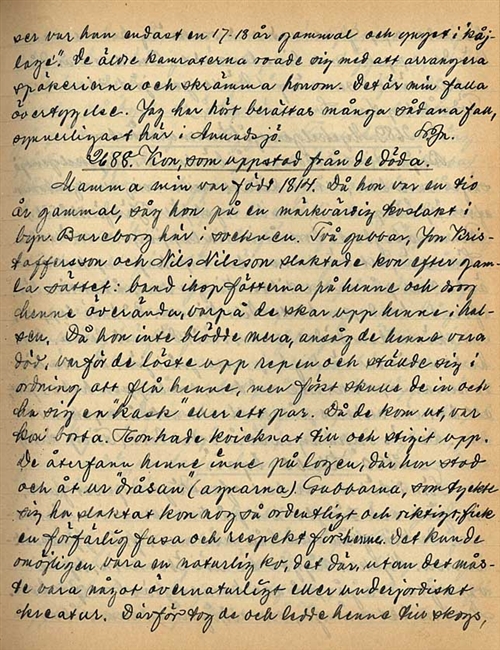 ser var han endast en 17-18 år gammal och yngst i "kåj-
lage". De äldre kamraterna roade sig med att arrangera
spökerierna och skrämma honom. Det är min fulla
övertygelse. Jag har hört berättas många sådana fall,
synnerligast här i Anundsjö.
2688. Kon, som uppstod från de döda.
Mamma min var född 1814. Då hon var en tio
år gammal, såg hon på en märkvärdig koslakt i
byn Bureborg här i socknen. Två gubbar, Jon Kris-
toffersson och Nils Nilsson slaktade kon efter gam-
la sättet: band ihop fötterna på henne och drog
henne överända, varpå de skar upp henne i hal-
sen. Då hon inte blödde mera, ansåg de henne vara
död, varför de löste upp repen och ställde sig i
ordning att flå henne, men först skulle de in och
ha sig en "kask" eller ett par. Då de kom ut, var
kon borta. Hon hade kvicknat till och stigit upp.
De återfann henne inne på logen, där hon stod
och åt ur "dråsan" (agnarna). Gubbarna, som tyckte
sig ha slaktat kon nog så ordentligt och riktigt, fick
en förfärlig fasa och respekt för henne. Det kunde
omöjligen vara en naturlig ko, det där, utan det mås-
te vara något övernaturligt eller underjordiskt
kreatur. Därför tog de och ledde henne till skogs,